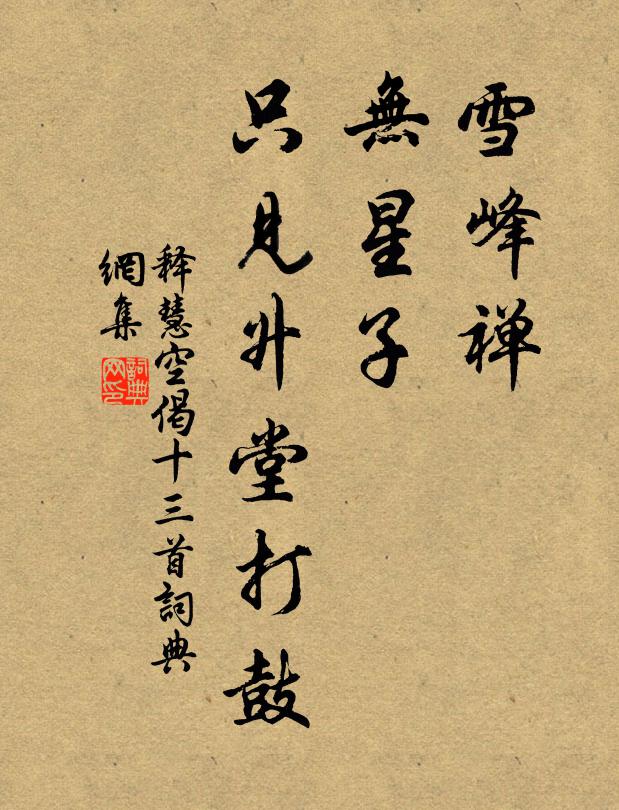 雪峰禅
無星子
只見升堂打鼓
释慧空偈十三首詞典
網集
詞典
网印